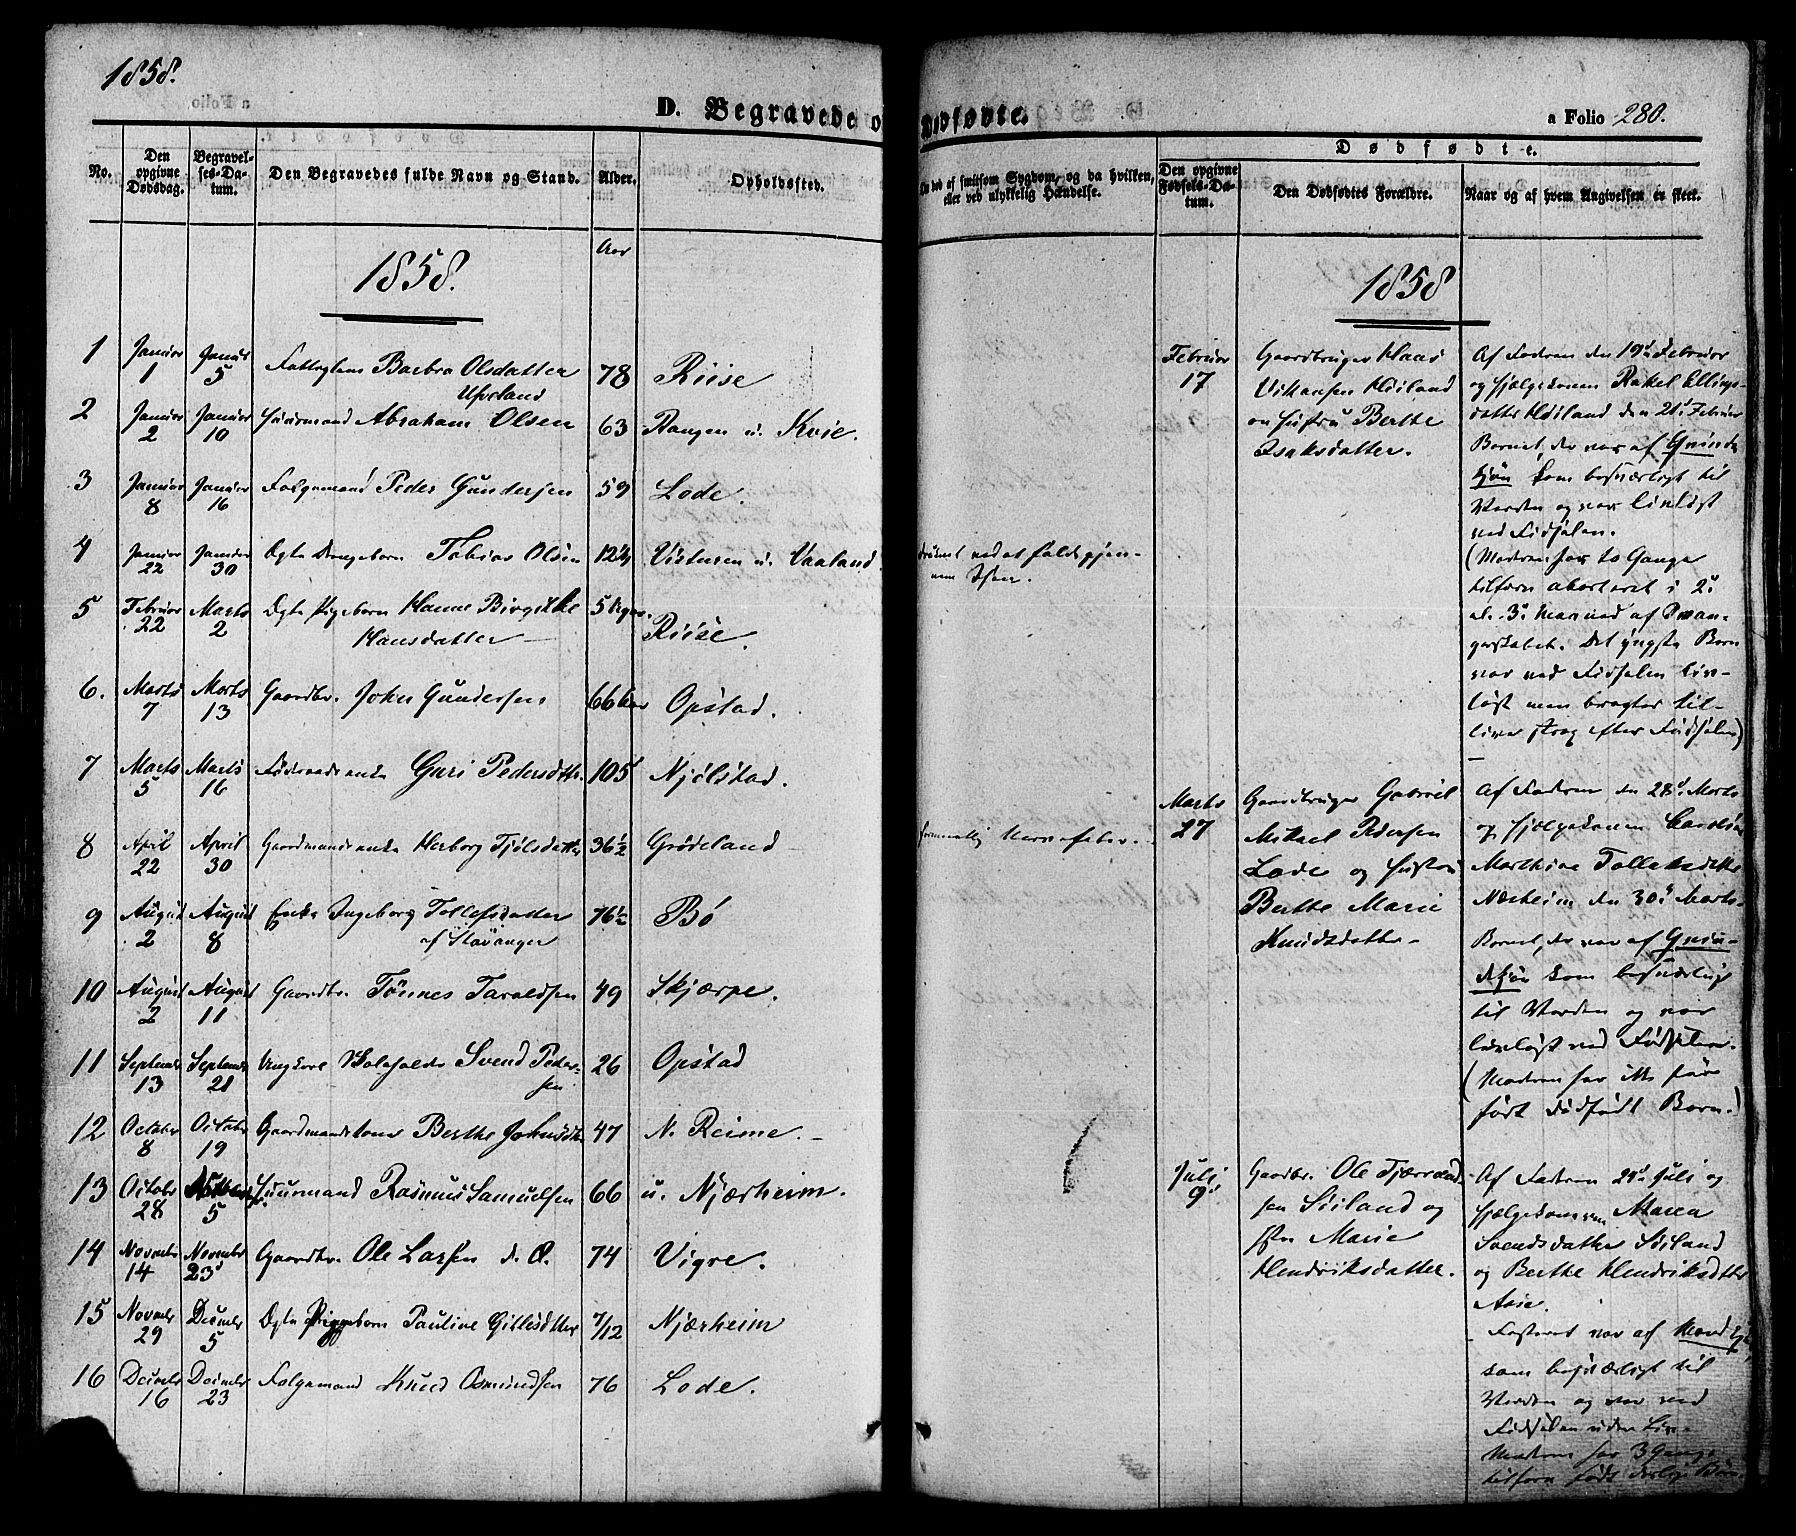 1858.
D. Begravede o
Dødfødte.
a Folio 280.
No.
Den opgivne Dødsdag.
Begravelses-Datum.
Den Begravedes fulde Navn og Stand.
Alder.
Opholdssted.
død af smitsom Sygdom, og da hvilken, eller ved ulykkelig Hændelse.
Dødfødte.
Den opgivne Fødsels-Datum.
Den Dødfødtes Forældre.
Naar og af hvem Angivelsen er skeet.
Aar
1858.
1 Januar 1 Januar 5 Barbra Olsdatter 78 Riise
Ueland
2 Januar 2 Januar 10 Huusmand Abraham Olsen 63 Haugen u. Kvie.
3 Januar 8 Januar 16 Folgemand Peder Gundersen 59 Lode.
4 Januar 22 Januar 30 Ægte Drengebarn Tobias Olsen u. Vaaland.
5 Februar 22 Marts 2 Ægte Pigebarn Hanne Birgitte 5 Uger.
Hansdatter Riise.
6. Marts 7 Marts 13 Gaardbr. John Gundersen 66 Aar Opstad.
7 Marts 5 Marts 16 Guri Pedersdtr. 105 Njølstad.
8 April 22 April 30 Gaardmandsenke Herborg 36½ Grødeland
9 August 2 August 8 Enke Ingeborg Tollefsdatter 76½ Bø
af Stavanger
10 August 2 August 11 Gaardbr. Tönnes Taraldsen 49 Skjærpe.
11 September 13 September 21 Ungkarl Svend Peder- 26 Opstad
sen
12 October 8 October 19 Gaardmandskone Berthe Johnsdtr 47 N. Reime.
13 October 28 5 Huusmand Rasmus Samuelsen 66 u. Njærheim.
14 November 14 November 23 Gaardbr. Ole Larsen d. Æ. 74 Vigre.
15 November 29 December 5 Ægte Pigebarn Pauline 7/12 Njærheim
16 December 16 December 23 Folgemand Knud Osmundsen 76 Lode.
druknet ved at falde gjen-
nem Isen.
1858
Februar 17
Gaardbruger Claas
Høiland
og Hustru Berthe
Isaksdatter.
Af Faderen den 19d Februar
og Hjælpekonen Rakel Ellings-
datter Høiland den 21d Februar
Barnet, der var af Qvinde
kjøn kom besværligt til
Verden og var livløst
ved Fødselen.
(Moderen har to Gange
tilforn aborteret i 2d
el. 3d Maaned af Svan-
gerskabet. Det yngste Barn
var ved Fødselen liv-
løst men bragtes til-
live strax efter Fødselen)
Marts 27
Gaardbruger Gabriel
Mikael Pedersen
Lode og Hustru
Berthe Marie
Knudsdatter
Af Faderen den 28d Marts
og Hjælpekonen
Marthine
Nærheim den 30d Marts.
Barnet, der var af Qvin-
dekjøn kom besværligt
til Verden og var
livløst ved Fødselen.
(Moderen har ikke før
født dødfødt Barn.)
Juli 9d
Gaardbr. Ole
sen Søiland og
Marie
Hendriksdatter.
Af Faderen Juli og
Hjælpekonerne Maren
Svendsdatter Søiland
og Berthe Hendriksdtr
Fosteret var af Mandkjøn
som besværligt til
Verden og var ved
Fødselen uden Liv.
Moderen har 3 Gange
tilforn født